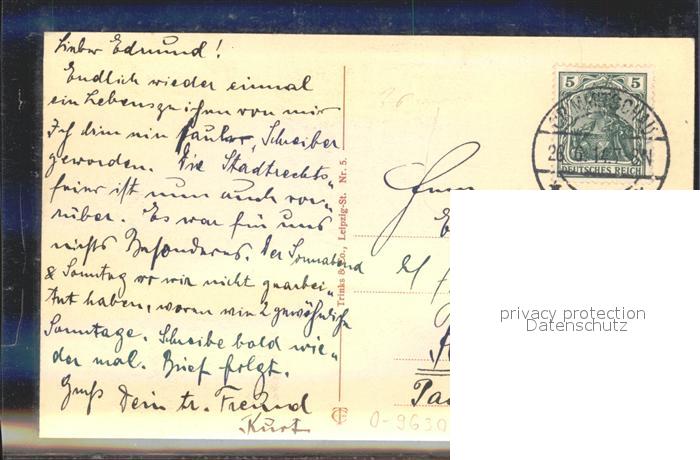 Lieber Edmund!
Endlich wieder einmal
ein Lebenszeichen von mir
Ich bin ein fauler Schreiber
geworden. Die Stadtrechts„
feier ist nun auch vor„
rüber. Es war für uns
nichts Besonderes. Der Sonnabend
& Sonntag wo wir nicht gearbei„
tet haben, waren wie 2 gewöhnliche
Sonntage. Schreibe bald wie„
der mal. Brief folgt.
Gruß Dein tr. Freund
Kurt
Trinks & Co., Leipzig-St. Nr. 5.
5 5
DEUTSCHES REICH
Herrn
privacy protection
Datenschutz
0-9630